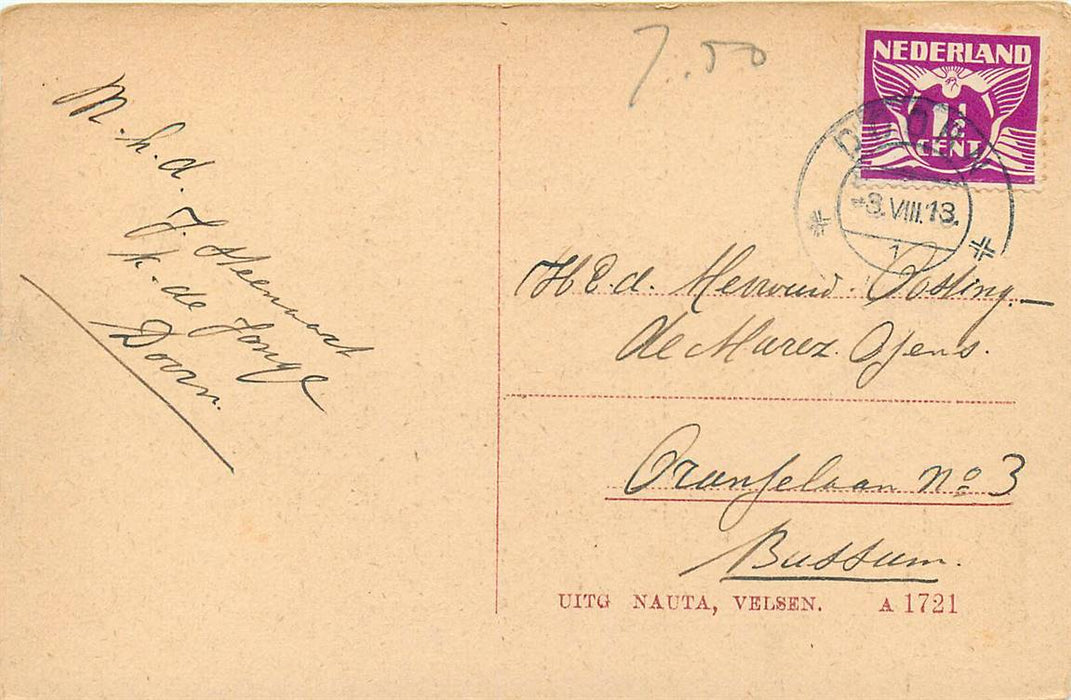 7.50
NEDERLAND
1½
CENT
DOORN
-8.VIII.18.
1
M. h. d.
J. Steenaart
k. de Jonge
Doorn.
H E. d. Mevrouw. Oosting-
de Marez. Oyens.
Oranjelaan No 3
Bussum.
UITG NAUTA, VELSEN. A 1721